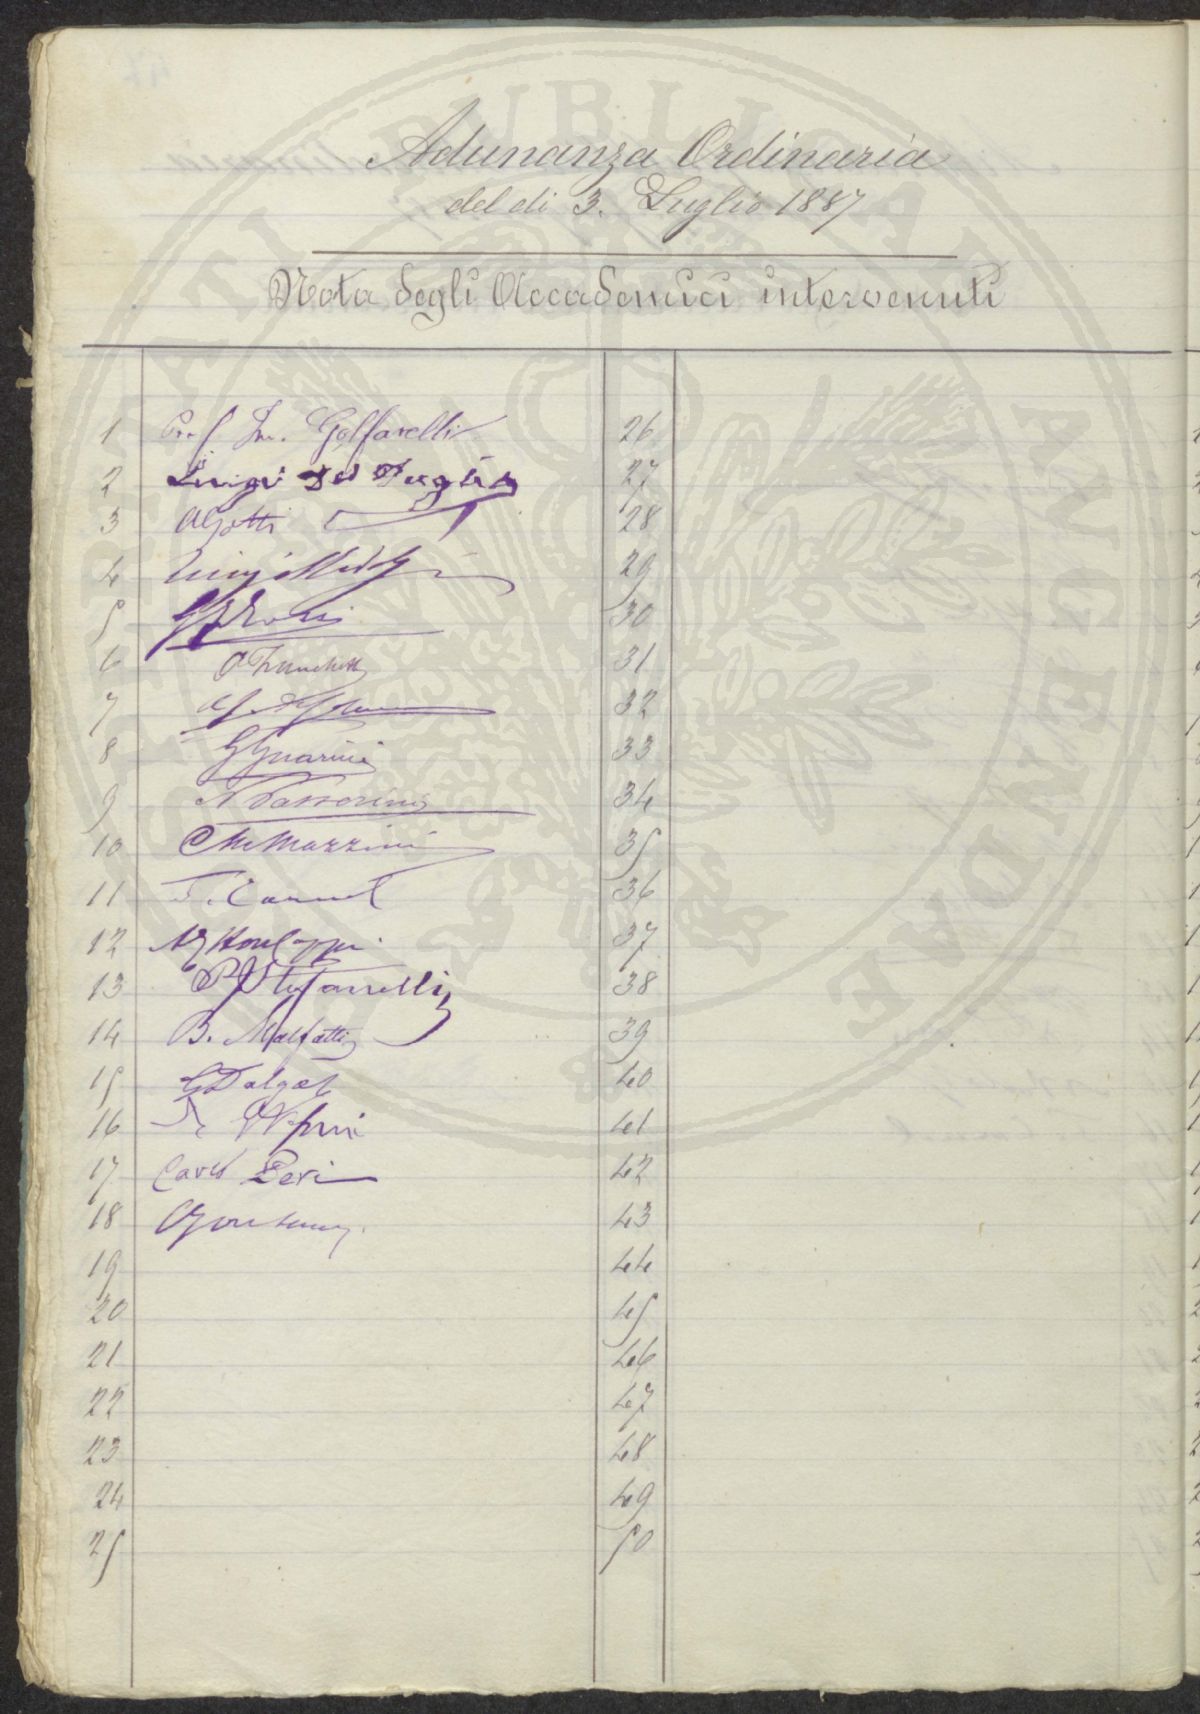 Adunanza Ordinaria
del dì 3. Luglio 1887
Nota degli Accademici intervenuti
1 Prof In. Golfarelli
2 Luigi Del Puglia
3
4 Luigi
5
6
7
8 G Guarini
9 N Passerini
10 C M Mazzini
11 T. Caruel
12
13 P Stefanelli
14 B. Malfatti
15 G Dalgas
16
17 Carlo Peri
18
19
20
21
22
23
24
25
26
27
28
29
30
31
32
33
34
35
36
37
38
39
40
41
42
43
44
45
46
47
48
49
50